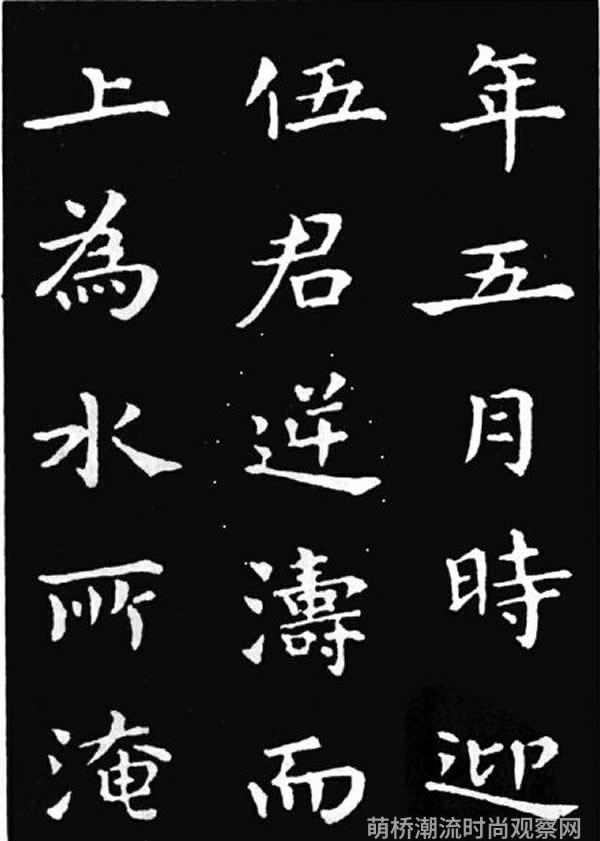 年五月時迎
伍君逆濤而
上為水所淹
萌桥潮流时尚观察网